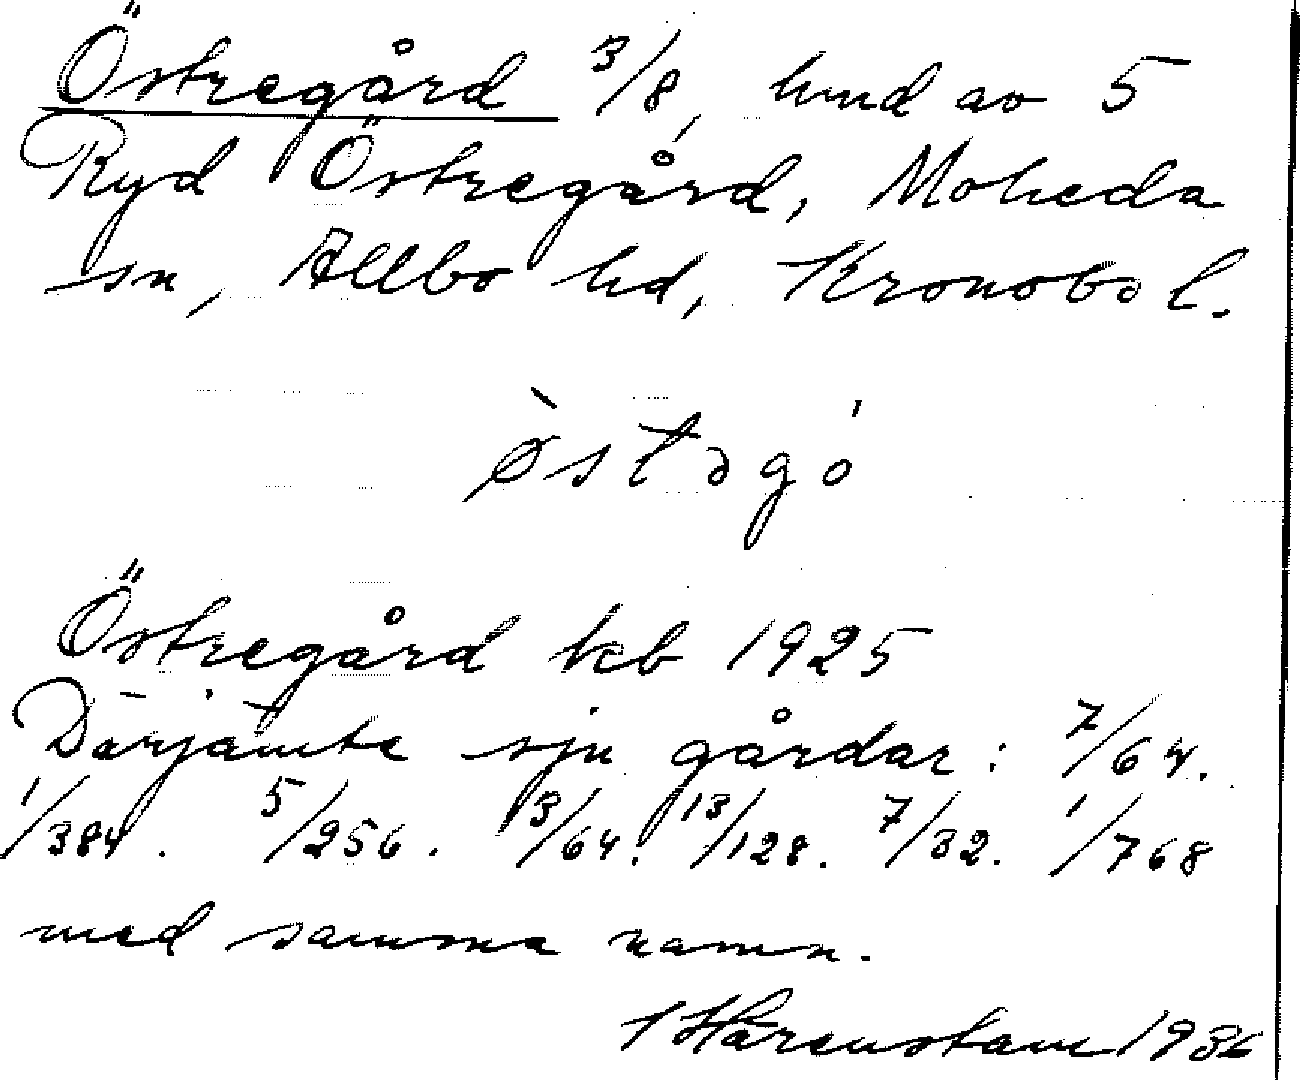 Östregård 3/8, hmd av 5
Ryd Östregård, Moheda
sn, Allbo hd, Kronobo l.
östəgó
Östregård kb 1925
Därjämte sju gårdar: 7/64.
1/384. 5/256. 3/64. 13/128. 7/32. 1/768
med samma namn.
Härenstam 1936